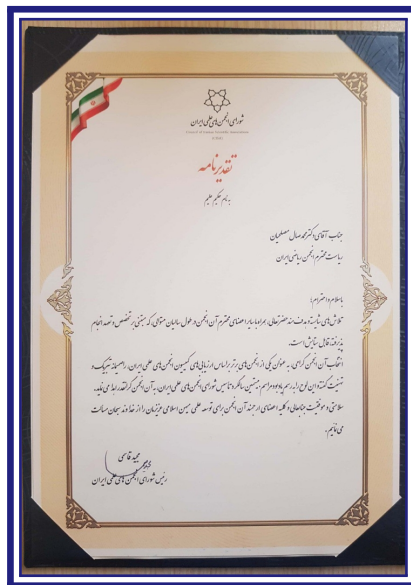 شورای انجمن‌های علمی ایران
تقدیرنامه
به نام حکیم علیم
جناب آقای دکتر محمد صال مصلحیان
ریاست محترم انجمن ریاضی ایران
با سلام و احترام؛
تلاش‌های شایسته و هدف‌مند حضرتعالی، همراه با سایر اعضای محترم آن انجمن در طول سالیان متوالی، که مبتنی بر تخصص و تعهد انجام
پذیرفته قابل ستایش است.
انتخاب آن انجمن گرامی، به عنوان یکی از انجمن‌های برتر براساس ارزیابی‌های کمیسیون انجمن‌های علمی ایران، را صمیمانه تبریک و
تهنیت گفته و این لوح را به رسم یادبود مراسم بیستمین سالگرد تاسیس شورای انجمن‌های علمی ایران، به آن انجمن گرانقدر اهدا می‌نماید.
سلامتی و موفقیت جنابعالی و کلیه اعضای ارجمند آن انجمن برای توسعه علمی میهن اسلامی عزیزمان را از خداوند سبحان مسألت
می‌نمائیم.
مجید قاسمی
رئیس شورای انجمن‌های علمی ایران